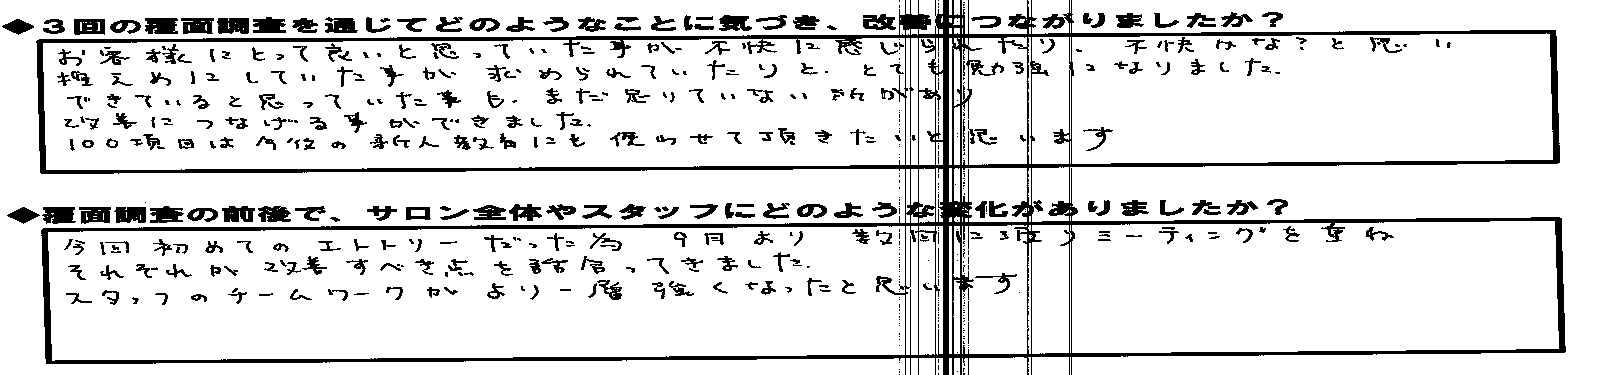 ◆３回の覆面調査を通じてどのようなことに気づき、改善につながりましたか？
お客様にとって良いと思っていた事が不快に感じられたり、不快かな？と思い
控えめにしていた事が求められていたりと、とても勉強になりました。
できていると思っていた事も、まだ足りていない所があり
改善につなげる事ができました。
100項目は今後の新人教育にも使わせて頂きたいと思います
◆覆面調査の前後で、サロン全体やスタッフにどのような変化がありましたか？
今回初めてのエントリーだった為 9月より 数回に渡りミーティングを重ね
それぞれが改善すべき点を話合ってきました。
スタッフのチームワークがより一層強くなったと思います